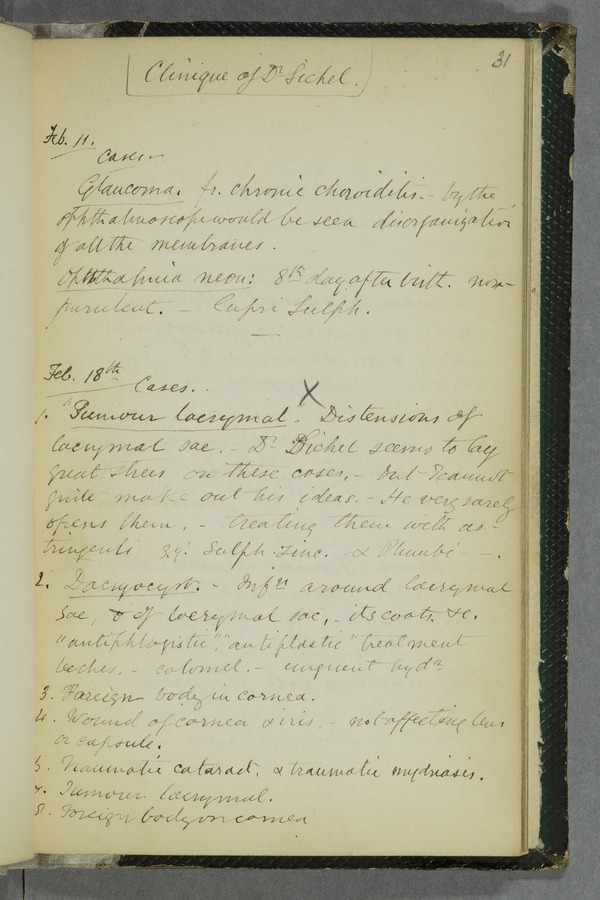 31
Clinique of Dr Sichel.
Feb. 11.
Cases -
Glaucoma. fr. chronic choroiditis. - by the
ophthalmoscope would be seen disorganization
of all the membranes.
Ophthalmia neon: 8th day after birth. non-
purulent. - Cupri Sulph.
Feb. 18th Cases. -
X
1. "Tumour lacrymal. Distensions of
lacrymal sac. - Dr Sichel seems to lay
great stress on these cases. - but I cannot
quite make out his ideas. - He very rarely
opens them, - treating them with as-
tringents Sulph. Zinc. & Plumbi - .
2. Dacryocyst. - Infn around lacrymal
sac, & of lacrymal sac, - its coats &c.
"antiphlogistic", "antiplastic" treatment
leeches. - calomel. - unguent hydr
3. Foreign body in cornea.
4. Wound of cornea & iris. - not affecting lens
or capsule.
5. Traumatic cataract. & traumatic mydriasis.
7. Tumour lacrymal.
8. Foreign body on cornea